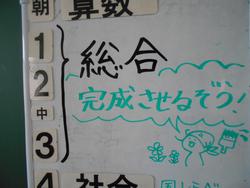 朝 算数
1 総合
2 完成させるぞう!
中
3
4 社会